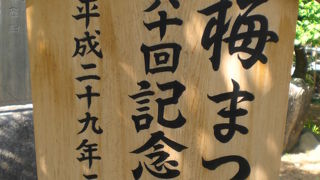 梅まつ
六十回記念
平成二十九年